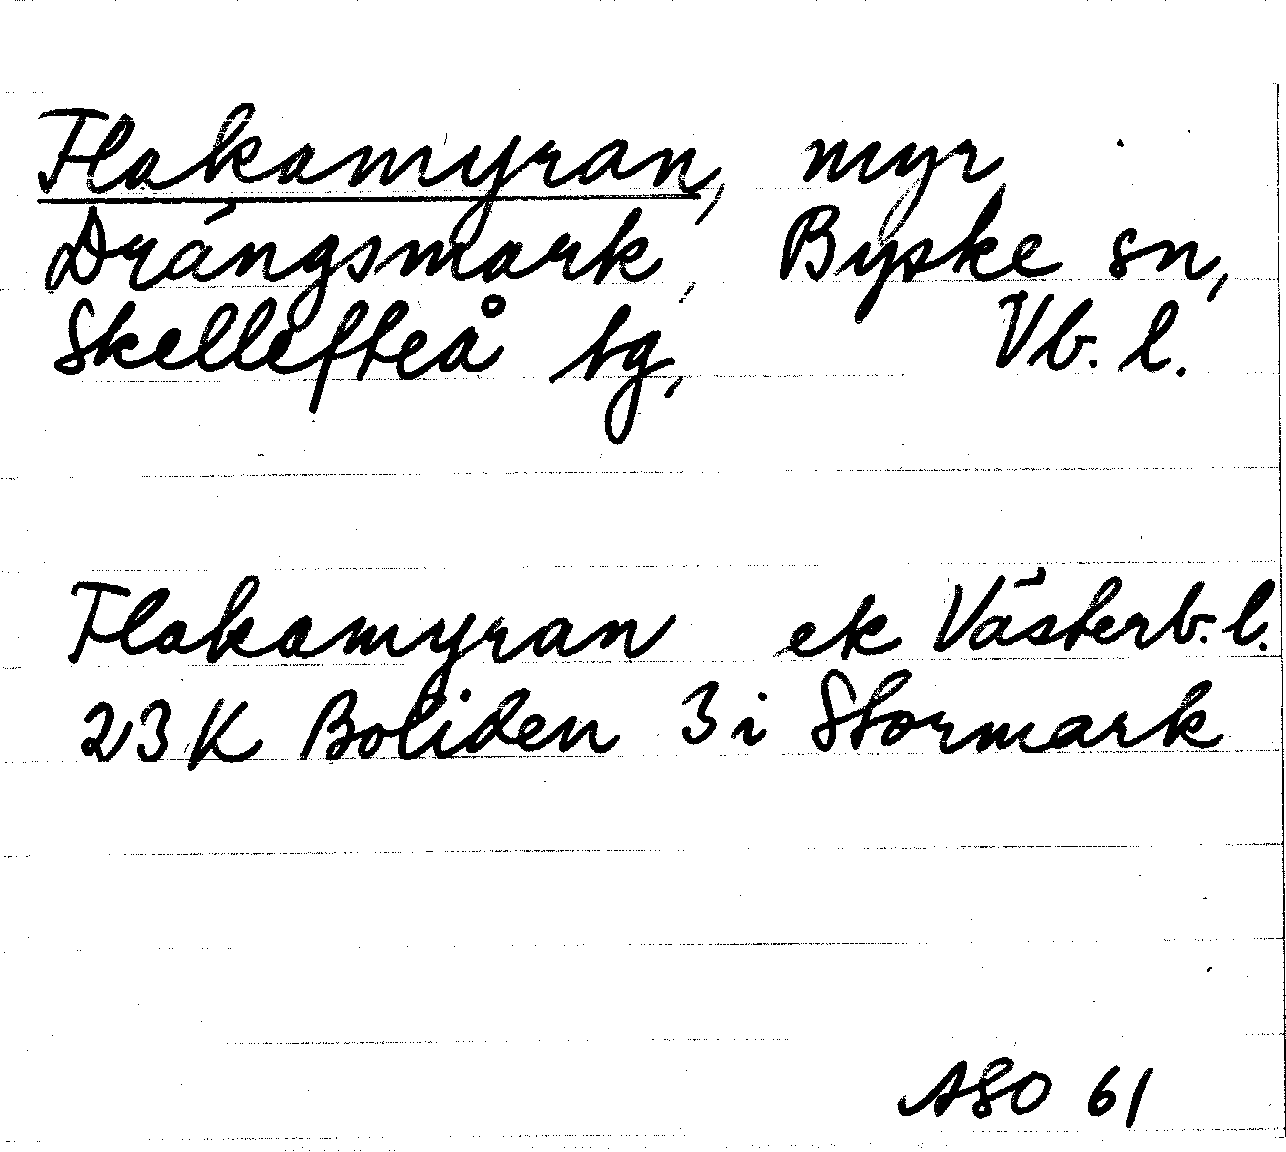 Flakamyran, myr,
Drängsmark, Byske sn,
Skellefteå tg, Vb. l.
Flakamyran ek Västerb. l.
23 K Boliden 3 i Stormark
ASO 61